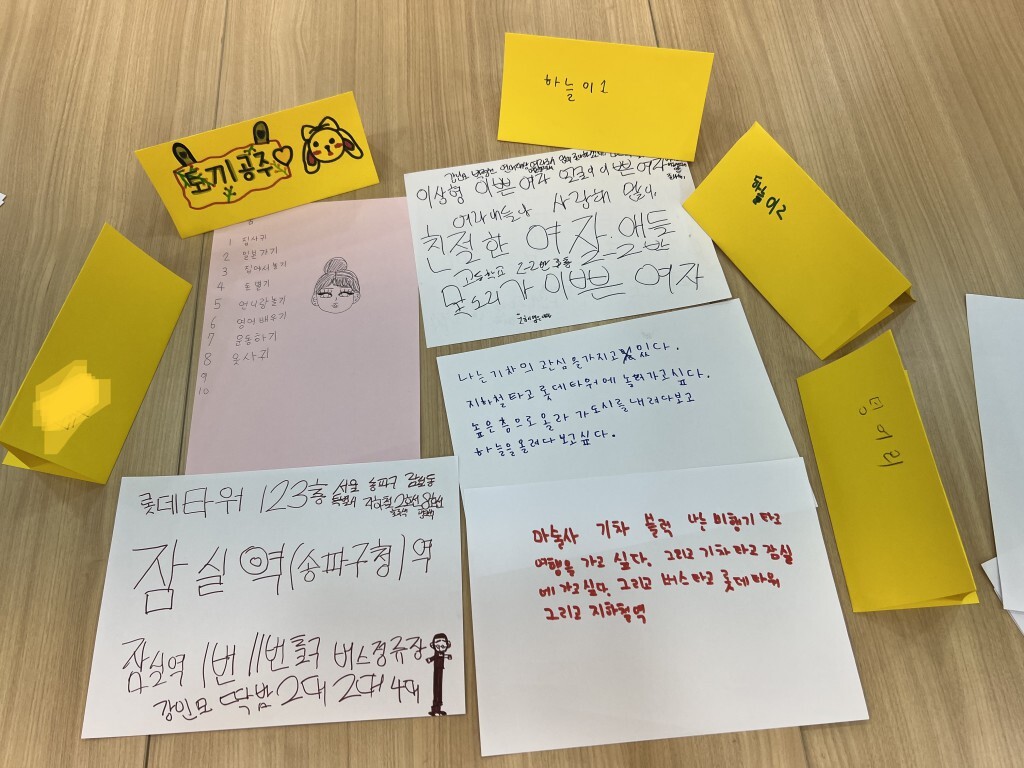 하늘이1
토끼공주
하늘이2
덩어리
1 집사기
2 일본가기
3
4
5 언니랑 놀기
6 영어배우기
7 운동하기
8 옷사기
9
10
이상형 이쁜 여자 이쁜 여자
여자애들랑 사랑해
친절한 여자 애들
고등학교 2-2반
목소리가 이쁜 여자
나는 기차의 관심을 가지고 있다.
지하철 타고 롯데타워에 놀러가고 싶다.
높은 층으로 올라가 도시를 내려다보고
하늘을 올려다 보고 싶다.
롯데타워 123층 서울 송파구 잠실동
특별시 지하철 2호선 8호선
잠실역(송파구청)역
잠실역 1번 11번 출구 버스정류장
강인모 딱밤 2대 2대 4대
마술사 기차 블럭 나는 비행기 타고
여행을 가고 싶다. 그리고 기차 타고 잠실
에 가고 싶다. 그리고 버스 타고 롯데타워
그리고 지하철역